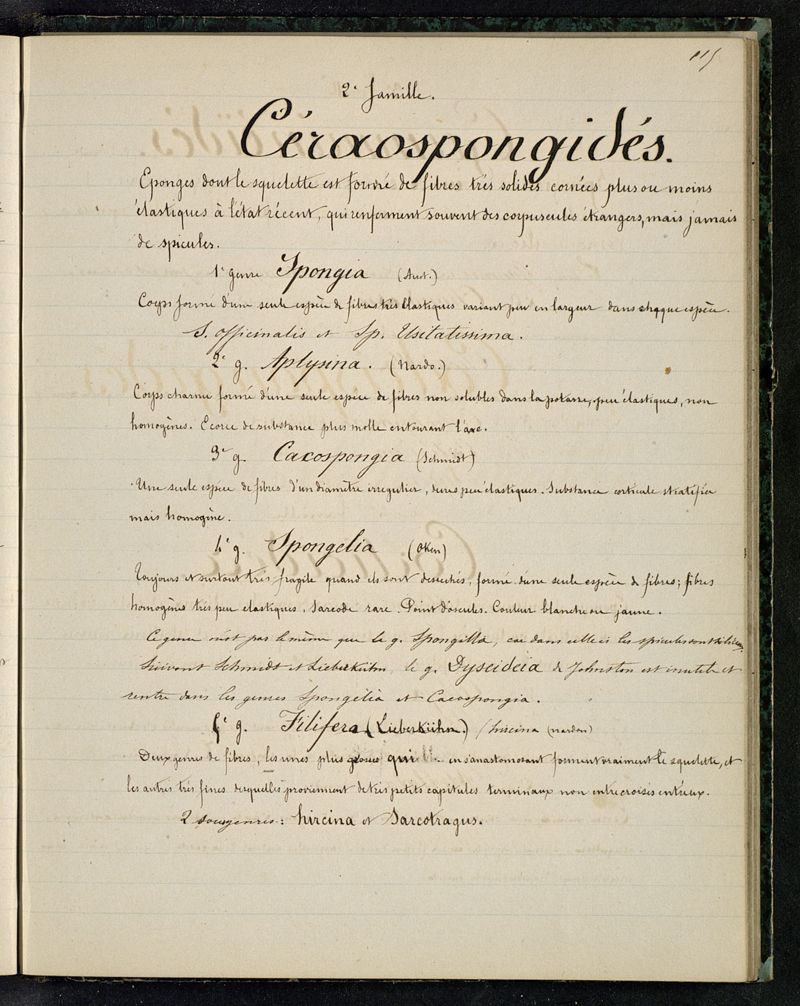 115
2e famille.
Céraospongidés.
Eponges dont le squelette est formé de fibres très solides cornées plus ou moins
élastiques à l'état récent, qui renferment souvent des corpuscules étrangers, mais jamais
de spicules.
1e genre Spongia (Auct.)
Corps formé d'une seule espèce de fibres très élastiques variant peu en largeur dans chaque espèce.
S. officinalis et Sp. Usitatissima.
2e g. Aplysina. (Nardo.)
Corps charnu formé d'une seule espèce de fibres non solubles dans la potasse, peu élastiques, non
homogènes. Ecorce de substance plus molle entourant l'axe.
3e g. Cacospongia (Schmidt)
Une seule espèce de fibres d'un diamètre irregulier, dures peu élastiques. Substance corticale stratifiée
mais homogène.
4e g. Spongelia (Oken)
Toujours et surtout très fragile quand ils sont desséchés, formé d'une seule espèce de fibres; fibres
homogènes très peu elastiques. Sarcode rare. Point d'oscules. Couleur blanche ou jaune.
Ce genre n'est pas le même que le g. Spongilla, car dans celle ci les spicules sont
Suivant Schmidt et Lieberkühn, le g. Dyseideia de Johnston est inutile et
rentre dans les genres Spongelia et Cacospongia.
5e g. Filifera (Lieberkühn.) / hircina (nardo)
Deux genres de fibres, les unes plus grosses qui en s'anastomosant forment vraiment le squelette, et
les autres très fines desquelles proviennent de très petits capitules terminaux non entrecroisés entr'eux.
2 sousgenres: hircina et Sarcotragus.